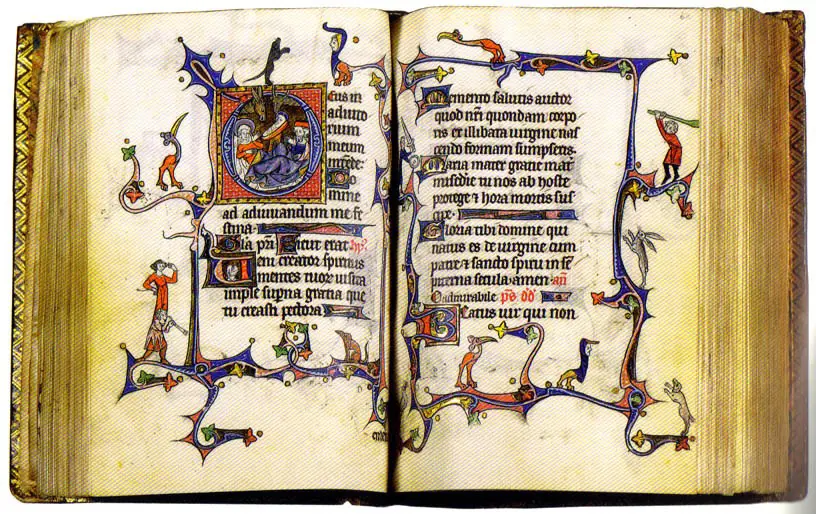 eus in
adiuto
rium
meum
intēde:
Do
mine
ad adiuuandum me fe
stina
Gl'ia pr̄i Sicut erat
Veni creator spiritus
mentes tuoꝝ uisita
imple supna gratia que
tu creasti pectora
60
Memento salutis auctor
quod nr̄i quondam corpo
ris ex illibata uirgine nas
cendo formam sumpseris
Maria mater gratie mat̄
misēdie tu nos ab hoste
protege ⁊ hora mortis sus
cipe
Gloria tibi domine qui
natus es de uirgine cum
patre ⁊ sancto spiritu in sē
piterna secula amen añ
O admirabile
Beatus uir qui non